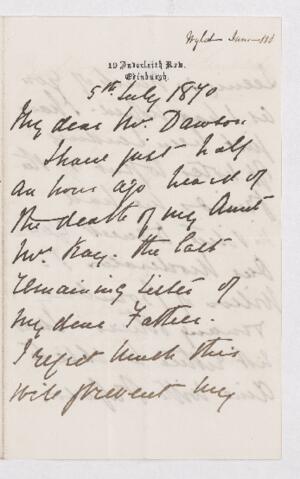 19 Inverleith Row,
Edinburgh.
5th July 1870
My dear Mr. Dawson
I have just half
an hour ago heard of
the death of my Aunt
Mrs. Kay. the last
remaining sister of
my dear Father.
I regret much this
will prevent my